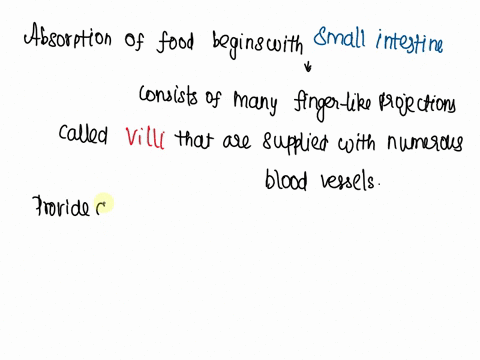 Absorption of food begins with small intestine
consists of many finger-like projections
called villi that are supplied with numerous
blood vessels.
Provide